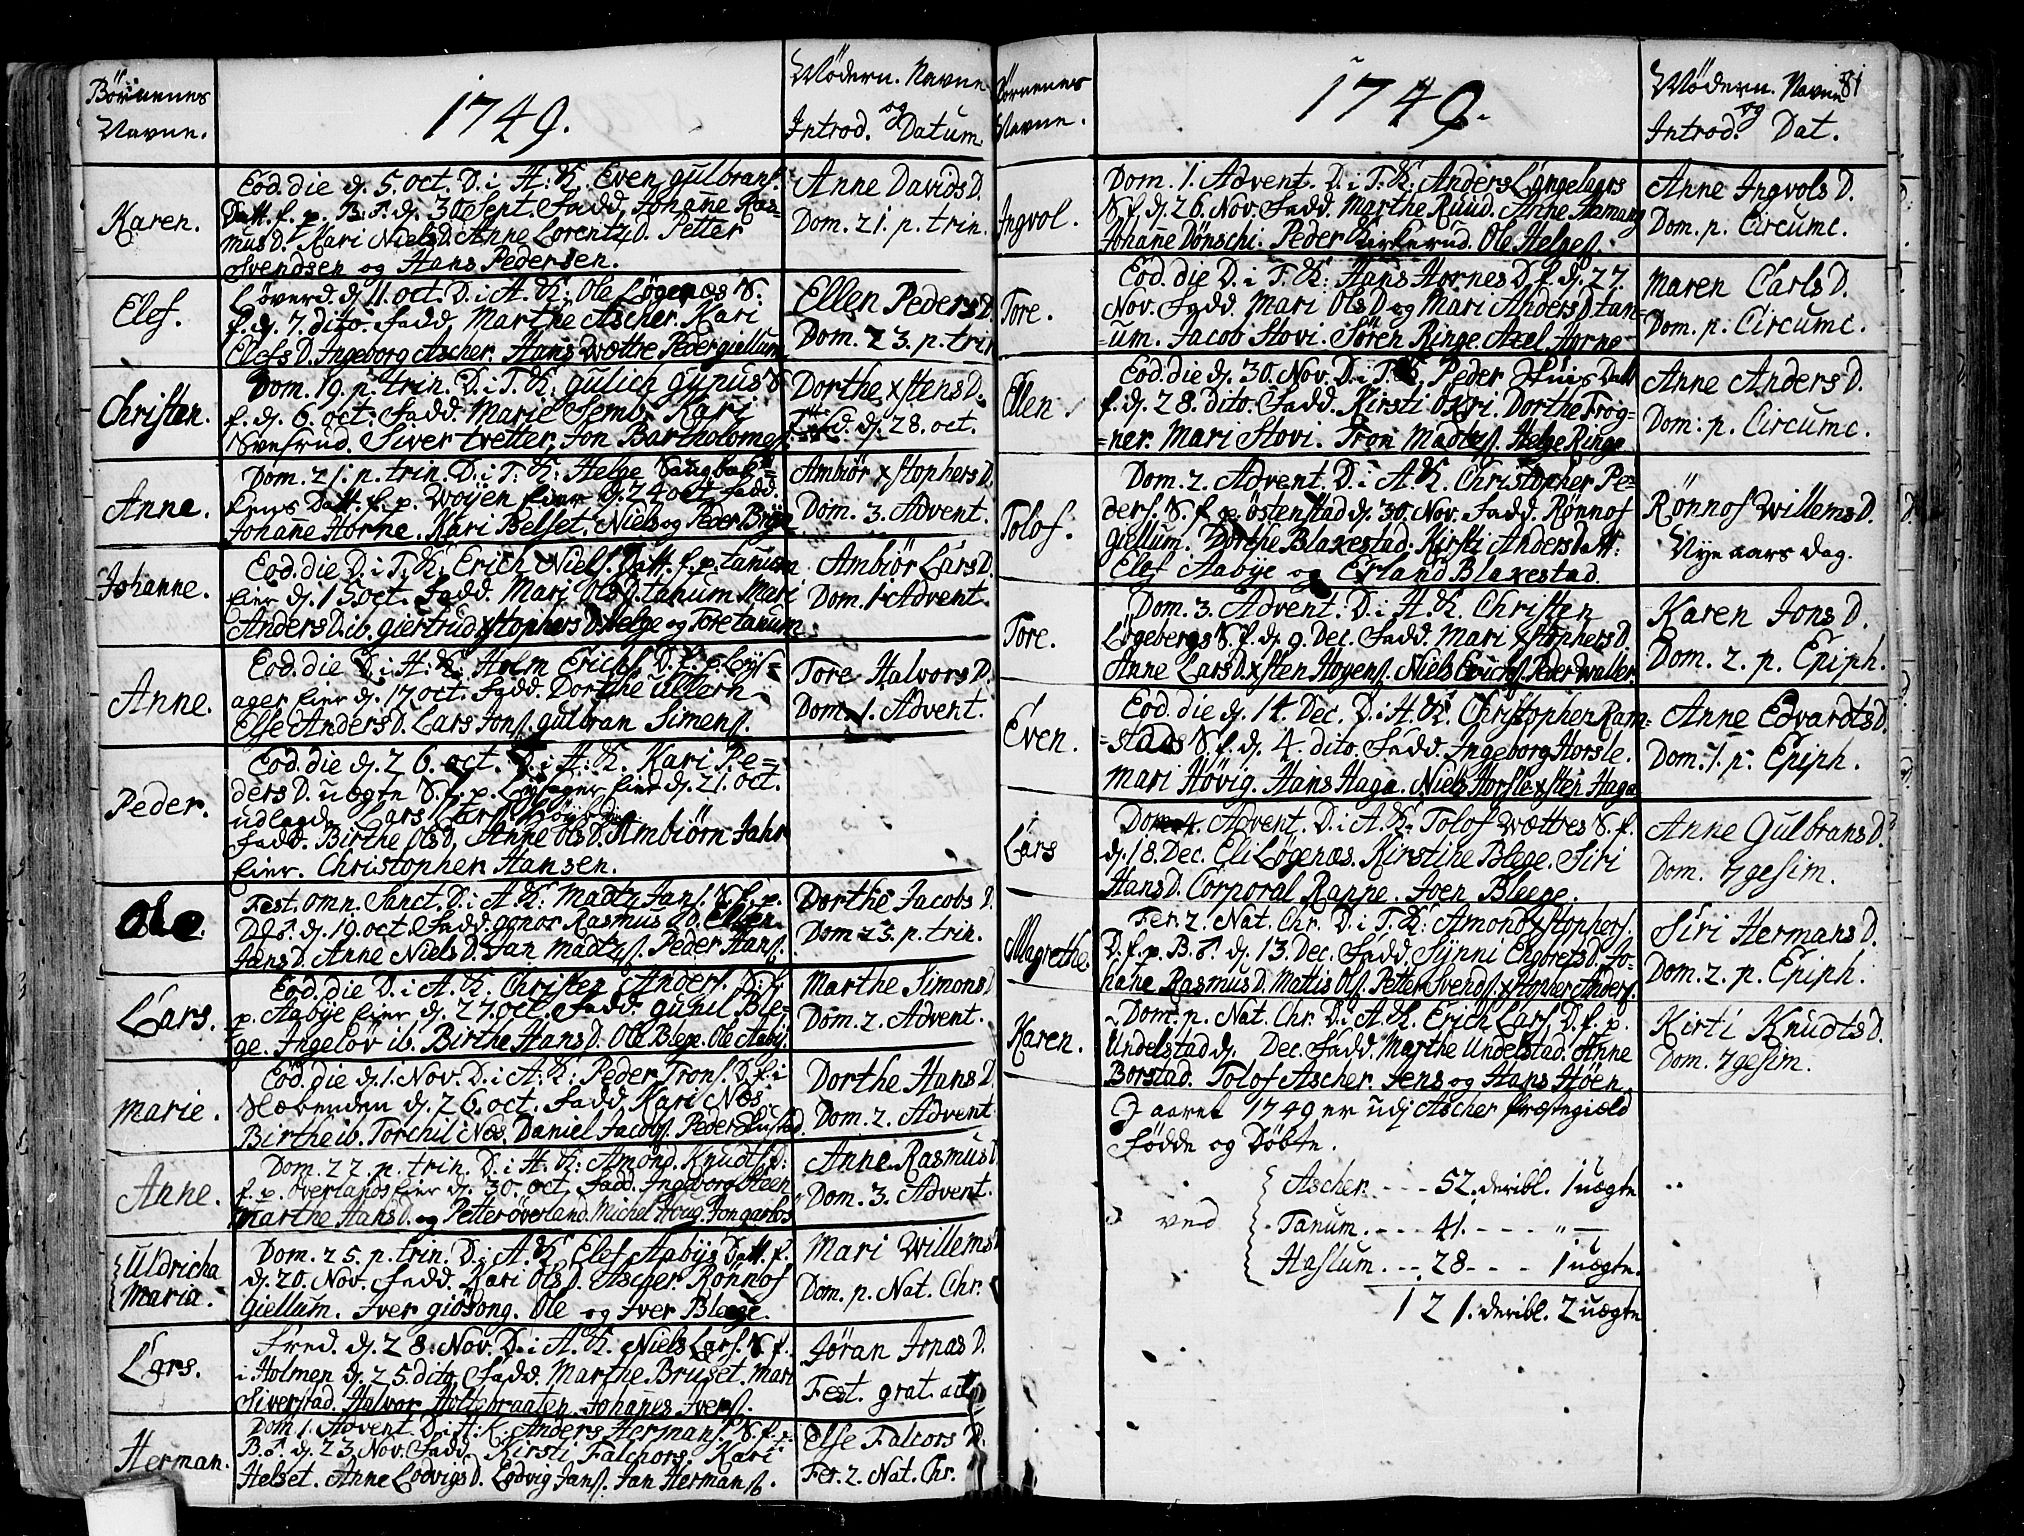 Börnenes
Navne.
1749.
Mödern. Navne
og
Introd. Datum.
Karen.
Eod. die d. 5. Oct. D. i A: K. Even gulbrans.
Datt. f. p. B. d. 30 Sept. Fadd. Johane Ras=
mus D. Kari Niels D. Anne Lorentz D. Petter
Svendsen og Hans Pedersen.
Anne Davids D.
Dom. 21. p. trin.
Elef.
Löverd. d. 11. oct. D. i A. K. Ole Løgenæs S.
f. d. 7. dito. Fadd. Marthe Ascher. Kari
Elefs D. Ingeborg Ascher. Hans Wættre Peder giellum
Ellen Peders D.
Dom. 23. p. trin
Christen.
Dom. 19. p. trin. D. i T. K: gulich S
f. d. 6. oct. Fadd. Marie Semb. Kari
Svesrud. Siver tvetter. Jon Bartholomes.
Dorthe xstens D.
d. 28. oct.
Anne.
Dom. 21. p. trin. D. i T. K: Helge Saugbak=
kens Datt. f. p. Woyen Eier d. 24 oct. Fadd.
Johane Horne. Kari Belset. Niels og Peder Bryn
Ambiör xstophers D.
Dom. 3. Advent.
Johanne.
Eod. die D. i T. K. Erich Niels. Datt. f. p. tanum
Eier d. 15 oct. Fadd. Mari Ols D. tanum Mari
Anders D. ib. giertrud xstophers D. Helge og Tore tanum
Ambiör Lars D.
Dom. 1. Advent.
Anne.
Eod. die D. i A. K. Holm Erichs. D. f. p. Løys=
ager Eier d. 17 oct. Fadd. Dorthe Ullern
Else Anders D. Lars Jons. gulbran Simens.
Tore Halvors D.
Dom. 1. Advent.
Peder.
Eod. die d. 26. oct. D. i A. K. Kari Pe=
ders D. uegte S. f. p. Løysager Eier d. 21. oct.
udlagd. Lars Lars.
Fadd. Birthe Ols D. Anne Ols D. Ambiörn Jahr
Eier. Christopher Hansen.
Ole.
Fest. omn. Sanct. D. i A. K. Madtz Jans. S. f. p.
d. 19. oct. Fadd. gonor Rasmus D. Ellen
Jans D. Anne Niels D. Jan Madtzs. Peder Hans.
Dorthe Jacobs D.
Dom 23. p. trin.
Lars.
Eod. die D. i A. K. Christen Anders. S. f.
p. Aabye Eier d. 27. oct. Fadd. gunil Ble=
ge. Ingelöv ib. Birthe Hans D. Ole Blege. Ole Aaby.
Marthe Simons D
Dom. 2. Advent.
Marie.
Eod. die d. 1. Nov. D. i A. K: Peder Trons. D. f. i
Næbenden d. 26. oct. Fadd. Kari Næs.
Birthe ib. Torchil Næs. Daniel Jacobs. Peder
Dorthe Hans D
Dom. 2. Advent
Anne.
Dom. 22. p. trin. D. i A. K: Amond Knudts. D:
f. p. Overlands Eier d. 30. oct. Fadd. Ingeborg Steen
Marthe Hans D. og Petter Överland. Michel Houg. Jon
Anne Rasmus D
Dom. 3. Advent.
Uldricha
Maria.
Dom. 25. p. trin. D. i A. K. Elef Aabys Datt. f.
d. 20. Nov. Fadd. Kari Ols D. Ascher. Rönnof
Giellum. Iver giösong. Ole og Iver Blege.
Mari Willems D
Dom. p. Nat. Chr.
Lars.
Fred. d. 28. Nov. D. i A. K. Niels Lars. S. f.
i Holmen d. 25. dito. Fadd. Marthe Bruset. Mari
Siverstad. Halvor Holtebraaten. Johanes Ivers.
Jöran Jonas D.
Fest. grat. act.
Herman.
Dom 1. Advent. D. i A: K: Anders Hermans. S. f. p.
B. d. 23. Nov. Fadd. Kirsti Falchors. Kari
Helset. Anne Lodvigs D. Lodvig Jans. Jan Hermans.
Else Falcors D.
Fer. 2. Nat. Chr.
Börnenes
Navne.
1749.
Mödern. Navne 81
og
Introd. Dat.
Ingvol.
Dom. 1. Advent. D. i T. K: Anders Langelaars
S. f. d. 26. Nov. Fadd. Marthe Ruud. Anne Hamang
Johane Dönschi. Peder Kirkerud. Ole Helges.
Anne Ingvols D.
Dom. p. Circumc.
Tore.
Eod. die D. i T. K: Hans Hornes D. f. d. 27.
Nov. Fadd. Mari Ols D og Mari Anders D tan=
=um. Jacob Stovi. Sören Ringe. Axel Horne
Maren Carls D.
Dom. p. Circumc.
Ellen
Eod. die d. 30. Nov. D. i T. K Peder Datt
f. d. 28. dito. Fadd. Kirsti Oxri. Dorthe Frog=
=ner. Mari Stovi. Tron Madtzs. Helge Ringe
Anne Anders D.
Dom: p. Circumc.
Tolof.
Dom. 2. Advent. D. i A. K. Christopher Pe=
ders. S. f. p. östenstad d. 30. Nov. Fadd. Rönnof
giellum. Dorthe Blaxestad. Kirsti Anders Datt:
Elef Aabye og Erland Blaxestad.
Rönnof Willems D.
Nye aars dag.
Tore.
Dom. 3. Advent. D. i A. K. Christen
Løgebergs S. f. d. 9. Dec. Fadd. Mari xstophers D.
Anne Lars D. xsten Hoyens. Niels Erichs. Peder Waller.
Karen Jons D.
Dom. 2. p. Epiph.
Even.
Eod. die d. 14. Dec. D. i A. K. Christopher Ram=
=stads S. f. d. 4. dito. Fadd. Ingeborg Horsle.
Mari Hövig. Hans Haga. Niels Horsle xsten Haga
Anne Edvardts D.
Dom. 1. p. Epiph.
Lars
Dom 4. Advent. D. i A. K: Tolof Wættres S. f.
d. 18. Dec. Eli Løgenæs. Kirstine Blege. Siri
Hans D. Corporal Rappe. Joen Bleege.
Anne Gulbrans D.
Dom. 7gesim.
Magrethe.
Fer. 2. Nat. Chr. D. i T. K: Amond xstophers.
D. f. p. B. d. 13. Dec. Fadd. Synni Engbrets D. Jo=
hane Rasmus D. Mattis Ols. Petter Svends. xstopher Anders.
Siri Hermans D.
Dom. 2. p. Epiph.
Karen.
Dom. p. Nat. Chr. D. i A. K. Erich Lars. D. f. p.
Undelstad d. Dec. Fadd. Marthe Undelstad. Anne
Borstad. Tolof Ascher. Jens og Hans Höen
Kirti Knudts D.
Dom. 7gesim.
I aaret 1749 er udi Ascher Præstegiæld
födde og Döbte.
ved
Ascher. - - - 52. deribl. 1 uægte
Tanum. - - - 41. - - - - " —
Haslum. - - - 28 - - - - 1 uægte.
121. deribl. 2 uægte